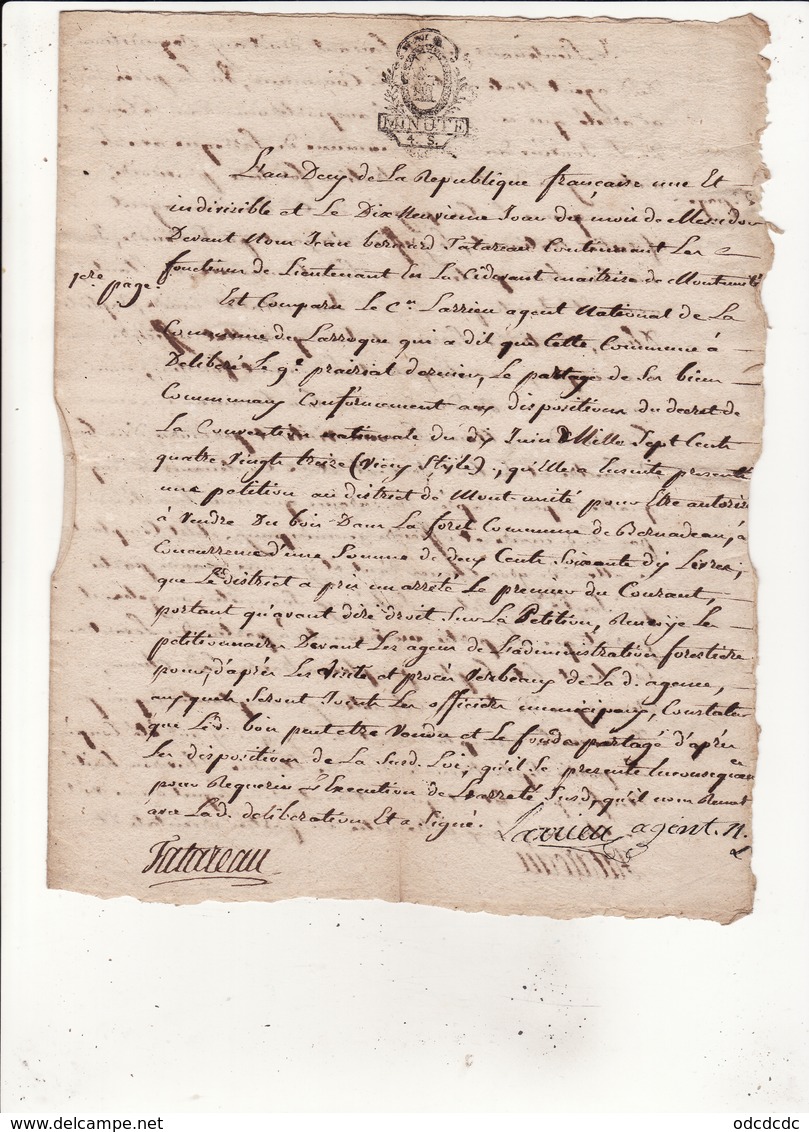 MINUTE
4. S.
L'an Deux de La Republique française une Et
indivisible et Le Dix Neuvieme Jour du mois de Messidor
Devant Nous Jean bernard Tatareau Continuant Les
fonctions de Lieutenant En La Cidevant maitrise de Montunité
1ere page.
Est Comparu Le C.en Larrieu agent National de La
Commune de Larroque qui a dit que Cette Commune à
Deliberé Le 9.e prairial dernier, Le partage de Ses biens
Communaux Conformement aux dispositions du decret de
La Convention nationale du dix Juin Mille Sept Cents
quatre Vingt treize (Vieux Style); qu'Elle a Ensuite presenté
une petition au district de Mont unité pour Etre autorisé
à Vendre Du bois Dans La foret Commune de Bernadeau, à
Concurrence d'une Somme de deux Cents Soixante dix Livres;
que Le district a pris un arrété Le premier du Courant,
portant qu'avant dire droit Sur La Petition, Renvoye Le
petitionnaire Devant Les agens de L'administration forestiere
pour, d'après Les Visite et procès Verbeaux de La d. agence,
auxquels Seront Joints Les officiers municipaux, Constater
que Led. bois peut etre Vendu et Le fonds partagé d'après
Les dispositions de La Susd. Loi, qu'il Se presente En consequence
pour Requerir L'Execution de L'arreté Susd, qu'il nous Remet
avec La d. deliberation Et a Signé.
Larrieu agent. N.
Tatareau